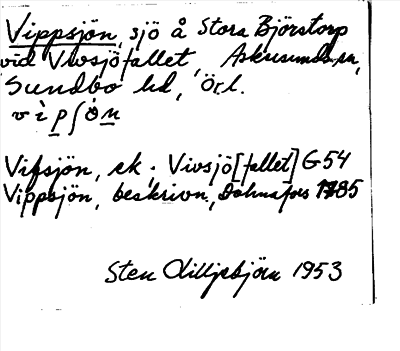 Vippsjön, sjö å Stora Björstorp
vid Vivsjöfallet, Askersunds sn,
Sundbo hd, Örl.
Vifsjön, ek.; Vivsjö[fallet] G 54
Vippsjön, beskrivn., Dohnafors 1785
Sten Lilljebjörn 1953